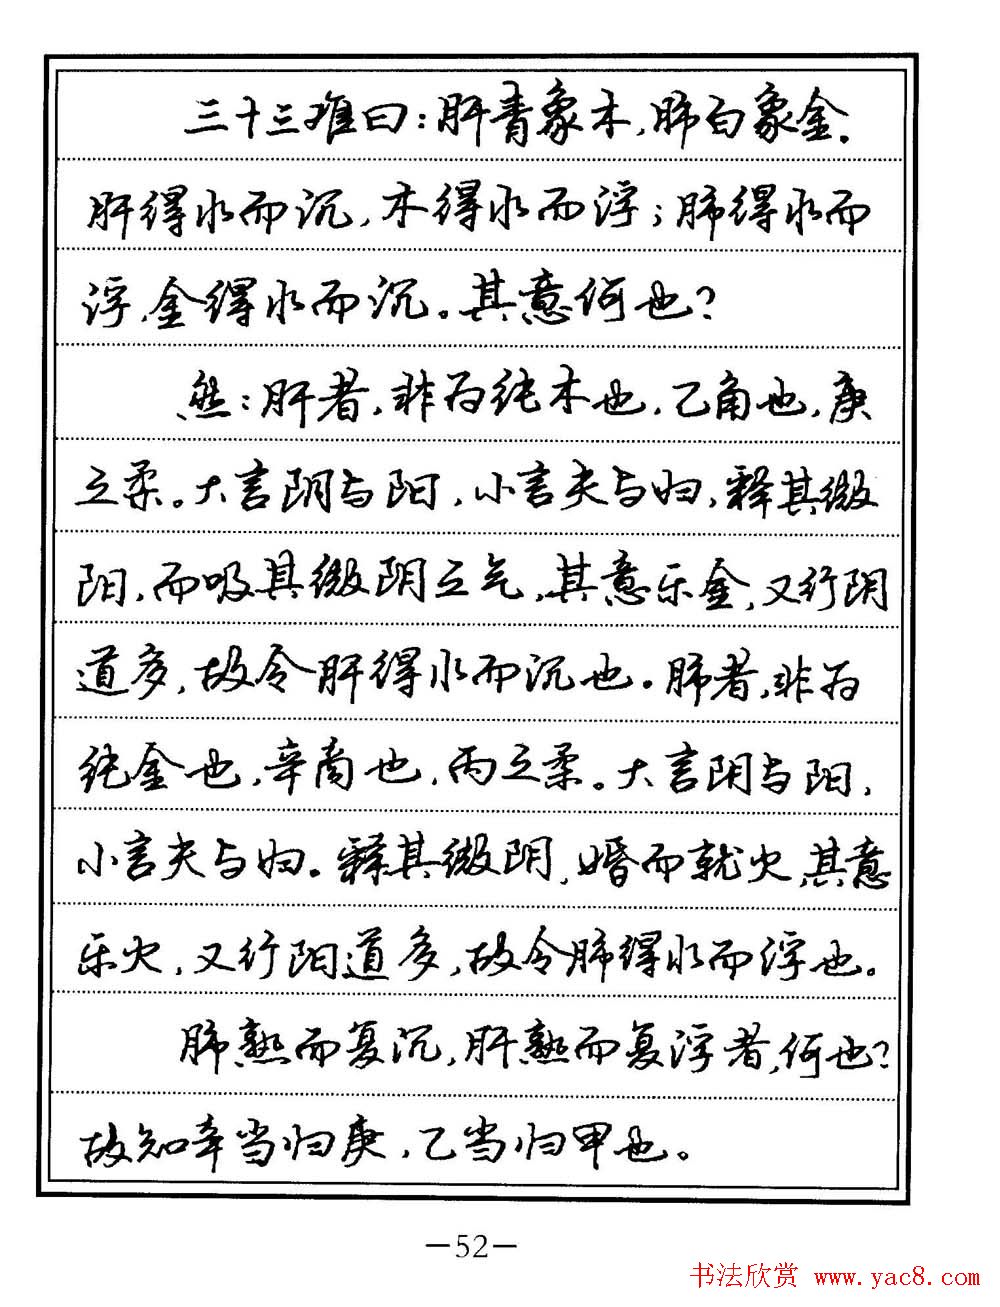 三十三难曰：肝青象木，肺白象金。
肝得水而沉，木得水而浮；肺得水而
浮，金得水而沉。其意何也？
然：肝者，非为纯木也，乙角也，庚
之柔。大言阴与阳，小言夫与妇，释其微
阳，而吸其微阴之气，其意乐金，又行阴
道多，故令肝得水而沉也。肺者，非为
纯金也，辛商也，丙之柔。大言阴与阳，
小言夫与妇。释其微阴，婚而就火，其意
乐火，又行阳道多，故令肺得水而浮也。
肺熟而复沉，肝熟而复浮者，何也？
故知辛当归庚，乙当归甲也。
—52—
书法欣赏 www.yac8.com